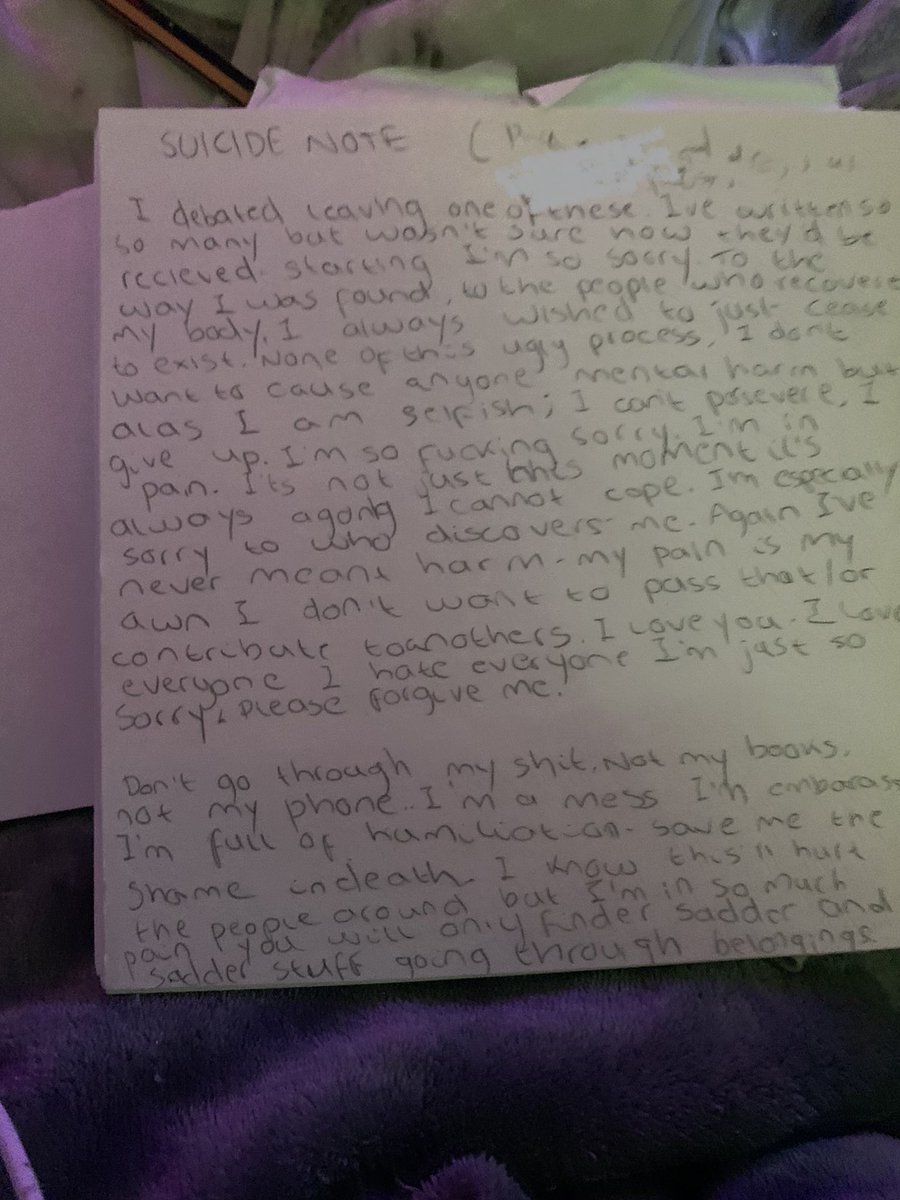 SUICIDE NOTE (
I debated leaving one of these. I've written so
so many but wasn't sure how they'd be
recieved. starting I'm so sorry. To the
way I was found, to the people who recovere
my body. I always wished to just cease
to exist. None of this ugly process, I don't
want to cause anyone mental harm but
alas I am selfish; I can't persevere, I
give up. I'm so fucking sorry. I'm in
pain. Its not just this moment it's
always agony I cannot cope. Im especially
sorry to who discovers me. Again I've
never meant harm - my pain is my
own I don't want to pass that/or
contribute to anothers. I love you. I love
everyone I hate everyone I'm just so
sorry, please forgive me.
Don't go through my shit. Not my books,
not my phone.. I'm a mess I'm embarass
I'm full of humiliation. save me the
shame in death. I know this'll hurt
the people around but I'm in so much
pain you will only finder sadder and
sadder stuff going through belongings